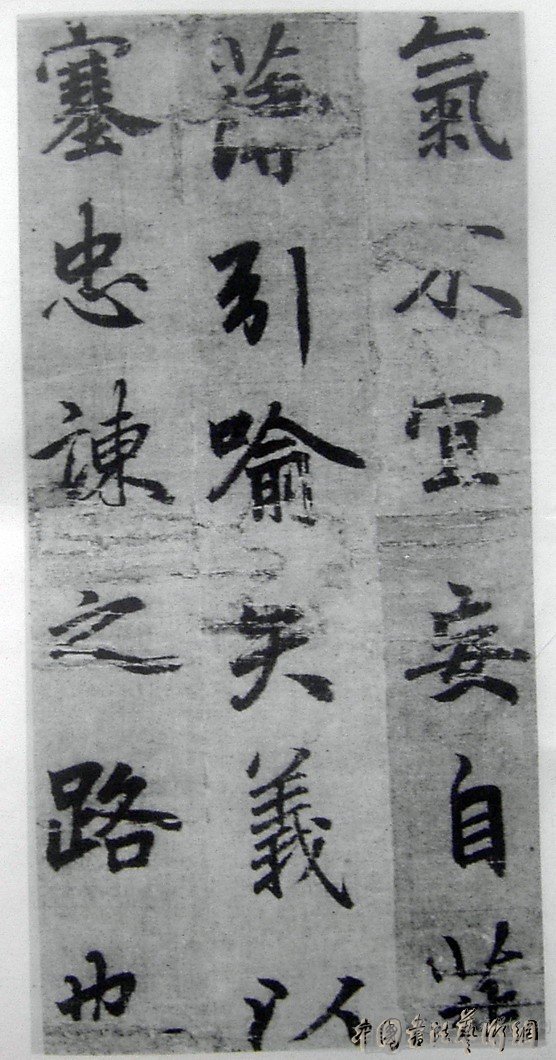 氣不宜妄自菲
薄引喻失義以
塞忠諫之路也
中国书法艺术網